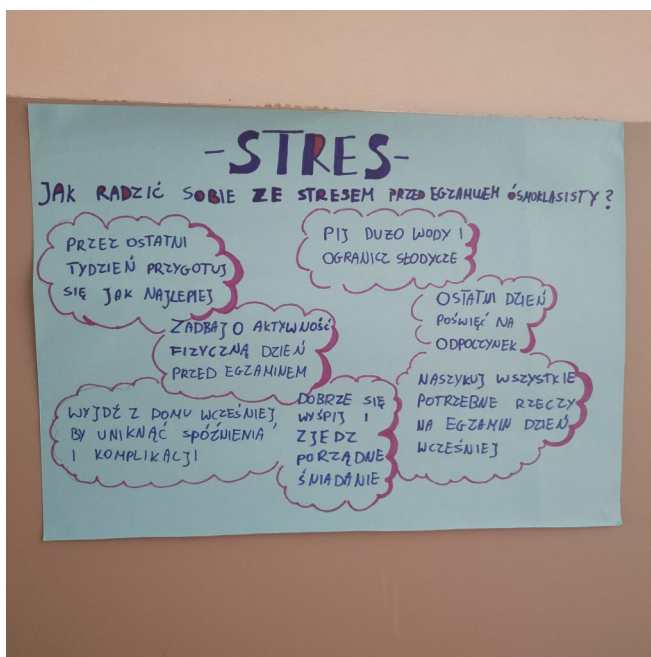 -STRES-
JAK RADZIĆ SOBIE ZE STRESEM PRZED EGZAMINEM ÓSMOKLASISTY?
PRZEZ OSTATNI
TYDZIEŃ PRZYGOTUJ
SIĘ JAK NAJLEPIEJ
PIJ DUŻO WODY I
OGRANICZ SŁODYCZE
ZADBAJ O AKTYWNOŚĆ
FIZYCZNĄ DZIEŃ
PRZED EGZAMINEM
OSTATNI DZIEŃ
POŚWIĘĆ NA
ODPOCZYNEK
WYJDŹ Z DOMU WCZEŚNIEJ,
BY UNIKNĄĆ SPÓŹNIENIA
I KOMPLIKACJI
DOBRZE SIĘ
WYŚPIJ I
ZJEDZ
PORZĄDNE
ŚNIADANIE
NASZYKUJ WSZYSTKIE
POTRZEBNE RZECZY
NA EGZAMIN DZIEŃ
WCZEŚNIEJ